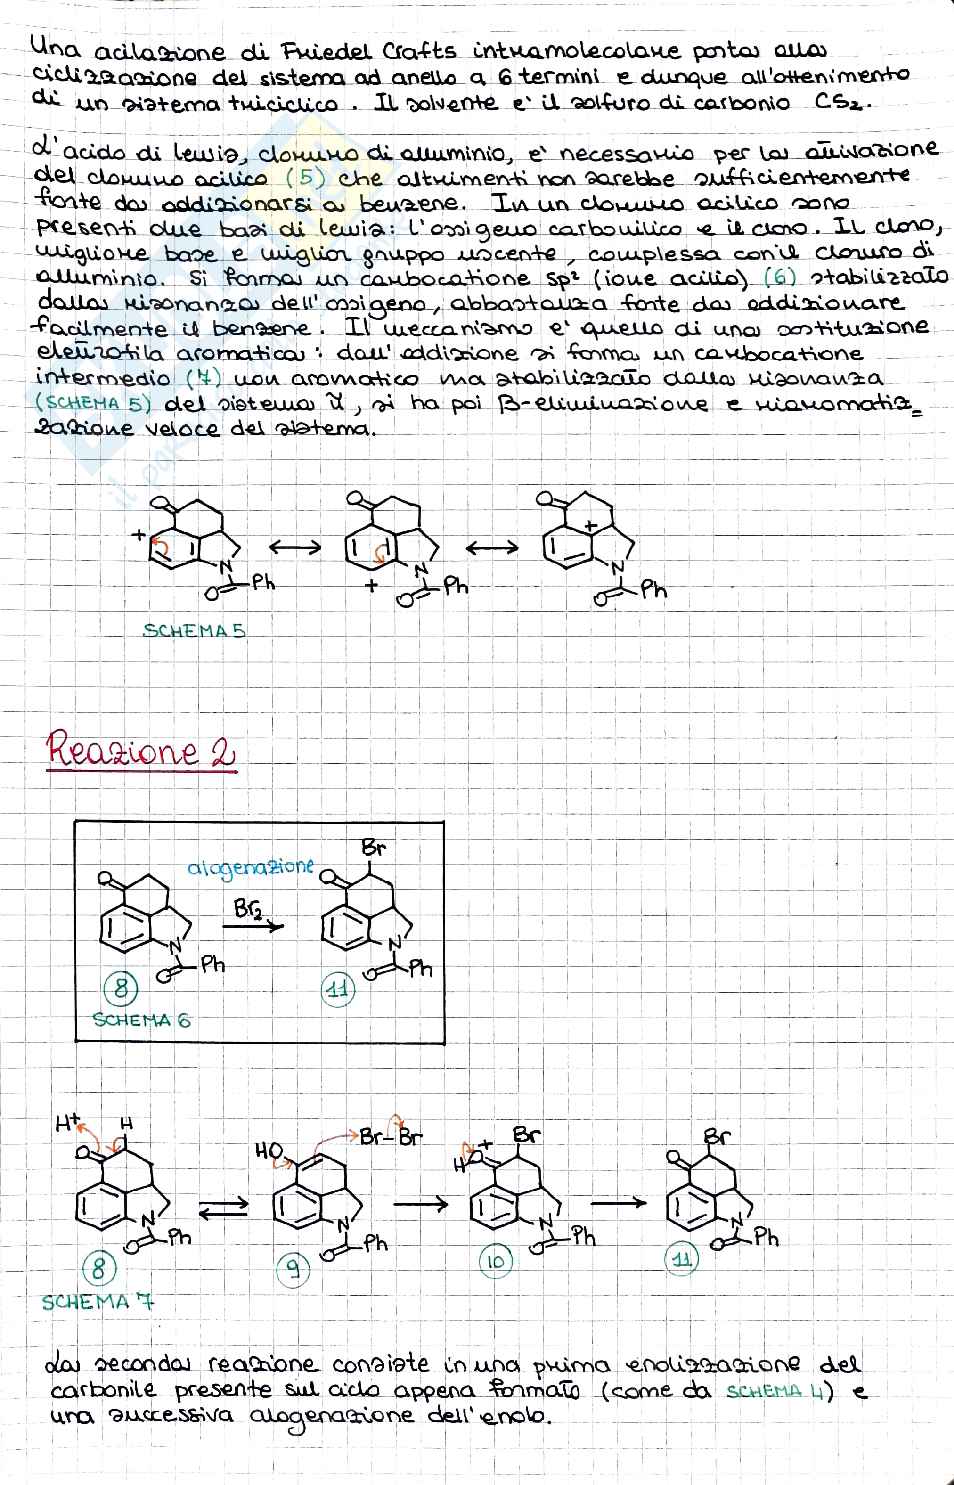 Una acilazione di Friedel Crafts intramolecolare porta alla
ciclizzazione del sistema ad anello a 6 termini e dunque all'ottenimento
di un sistema triciclico. Il solvente e' il solfuro di carbonio CS₂.
L'acido di Lewis, cloruro di alluminio, e' necessario per la attivazione
del cloruro acilico (5) che altrimenti non sarebbe sufficientemente
forte da addizionarsi a benzene. In un cloruro acilico sono
presenti due basi di Lewis: l'ossigeno carbonilico e il cloro. Il cloro,
migliore base e miglior gruppo uscente, complessa con il cloruro di
alluminio. Si forma un carbocatione sp² (ione acilio) (6) stabilizzato
dalla risonanza dell'ossigeno, abbastanza forte da addizionare
facilmente il benzene. Il meccanismo e' quello di una sostituzione
elettrofila aromatica: dall'addizione si forma un carbocatione
intermedio (7) non aromatico ma stabilizzato dalla risonanza
(SCHEMA 5) del sistema π, si ha poi β-eliminazione e riaromatiz=
zazione veloce del sistema.
O O O
+ +
N N N
+ O Ph O Ph O Ph
SCHEMA 5
Reazione 2
Br
alogenazione
O Br₂ O
N N
O Ph O Ph
8 11
SCHEMA 6
H+ H Br-Br Br Br
O HO HO+ O
N N N N
O Ph O Ph O Ph O Ph
8 9 10 11
SCHEMA 7
La seconda reazione consiste in una prima enolizzazione del
carbonile presente sul ciclo appena formato (come da SCHEMA 4) e
una successiva alogenazione dell'enolo.
il